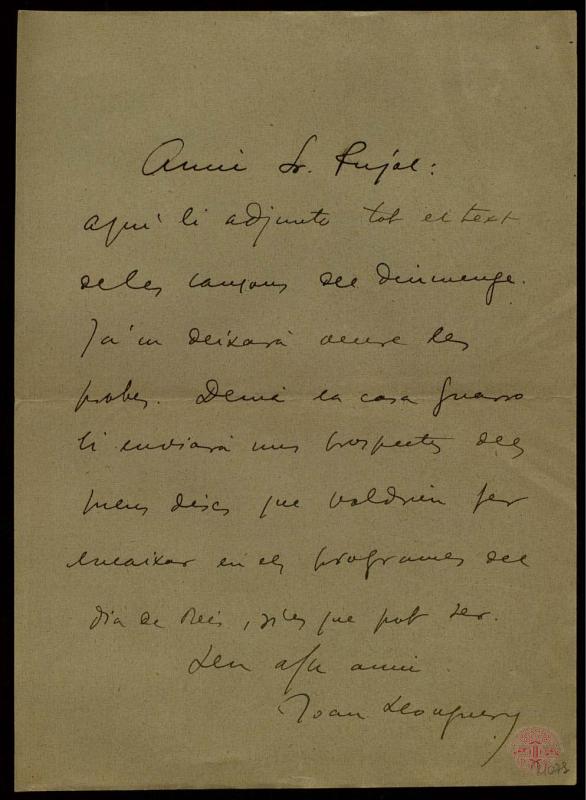 Amic Sr. Pujol:
aquí li adjunto tot el text
de les cançons del diumenge.
Ja'm deixarà veure les
probes. Demà la casa Guarro
li enviarà uns prospectes dels
meus discs que voldrien fer
encaixar en els programes del
dia de Reis, si es que pot ser.
Seu afm amic
Joan Llongueras